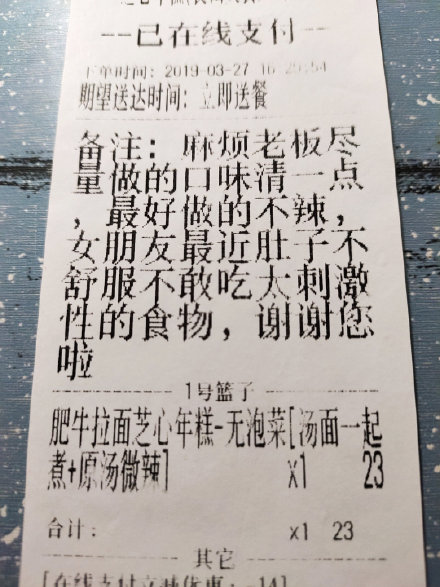 --已在线支付--
下单时间: 2019-03-27 16:29:54
期望送达时间: 立即送餐
备注: 麻烦老板尽
量做的口味清一点
, 最好做的不辣,
女朋友最近肚子不
舒服不敢吃太刺激
性的食物, 谢谢您
啦
1号篮子
肥牛拉面芝心年糕-无泡菜[汤面一起
煮+原汤微辣] x1 23
合计: x1 23
其它